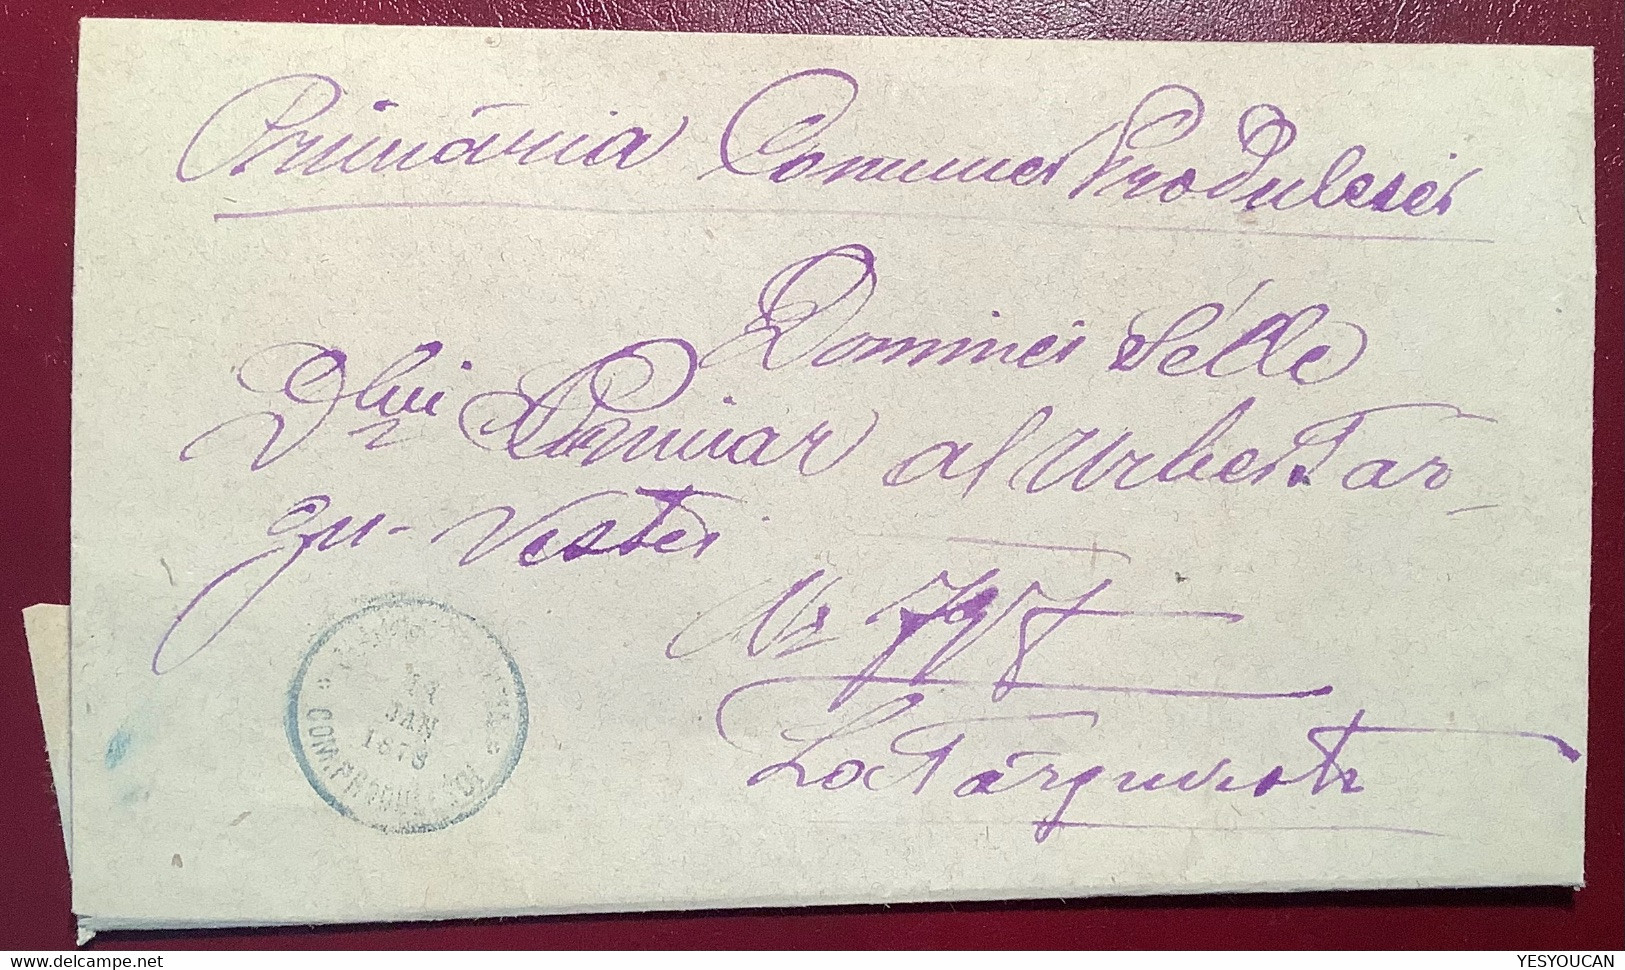 Primăria Comunei Produlesci
Domniei Sélle
Dlui Primar al Urbei Târ-
gu-Vestei
Nr 797
La Târguveste
11
JAN
1878
COM. PRODULESCI
delcampe.net
YESYOUCAN